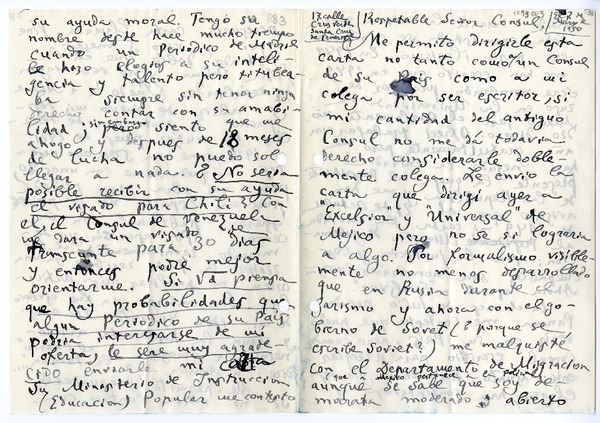 17 calle
Cruz Verde
Santa Cruz
de Tenerife
1950
Respetable Señor Consul,
Me permito dirigirle esta
carta no tanto como a un Consul
de su Pais como a mi
colega por ser escritor, si
mi cantidad del antiguo
Consul no me dá todavia
derecho considerarle doble-
mente colega. Le envio la
carta que dirigí ayer a
"Excelsior" y "Universal" de
Mejico pero no se si lograria
a algo. Por formalismo visible-
mente no menos desarrollado
que en Rusia durante el
zarismo y ahora con el go-
bierno de Sovet (? porque se
escribe Soviet?) me malquisté
con el Departamento de Migracion
aunque se sabe que soy de-
mocrata moderado, abierto
su ayuda moral. Tengo su 883
nombre desde hace mucho tiempo
cuando un Periodico de Madrid
le hizo elogios a su inteli-
gencia y talento pero titubea-
ba siempre sin tener ningun
derecho contar con su amabi-
lidad, sin embargo siento que me
ahogo y despues de 18 meses
de lucha no puedo sol
llegar a nada. ? No seria
posible recibir con su ayuda
el visado para Chili? Con
el Consul de Venezuela
me dara un visado
transeunte para 30 dias
y entonces podre mejor
orientarme. Si Vd piensa
que hay probabilidades que
algun Periodico de su Pais
podria interesarse de mi
oferta, le sere muy agrade-
cido enviarle mi carta
Su Ministerio de Instruccion
(Educacion) Popular me contesto